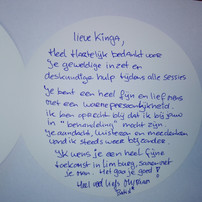 lieve Kinga,
Heel Hartelijk bedankt voor
je geweldige inzet en
deskundige hulp tijdens alle sessies
Je bent een heel fijn en lief mens
met een warme persoonlijkheid.
ik ben oprecht blij dat ik bij jouw
in "behandeling" mocht zijn.
Je aandacht, luisteren en meedenken
vond ik steeds weer bijzonder
Ik wens je een heel fijne
toekomst in limburg, samen met
je man. Het ga je goed!
Heel veel liefs